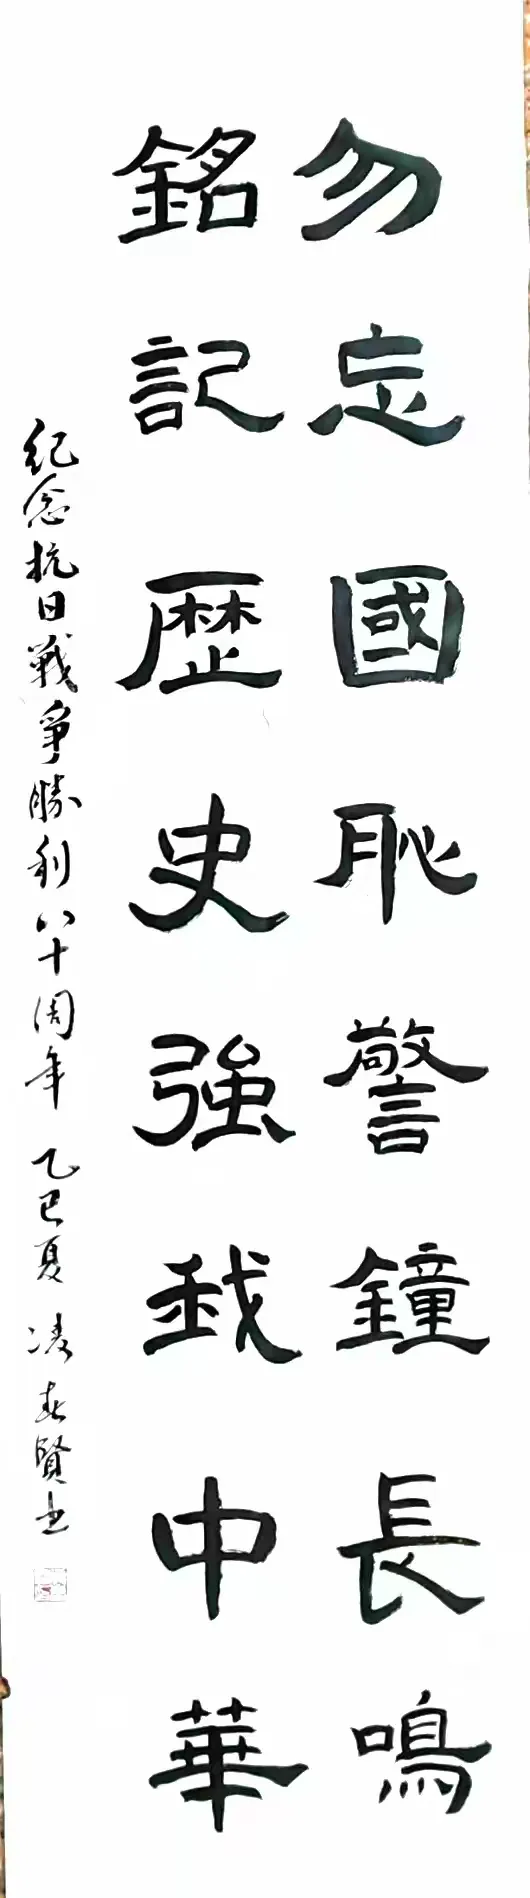 勿忘國恥警鐘長鳴
銘記歷史強我中華
紀念抗日戰爭勝利八十周年 乙巳夏 凌春賢书